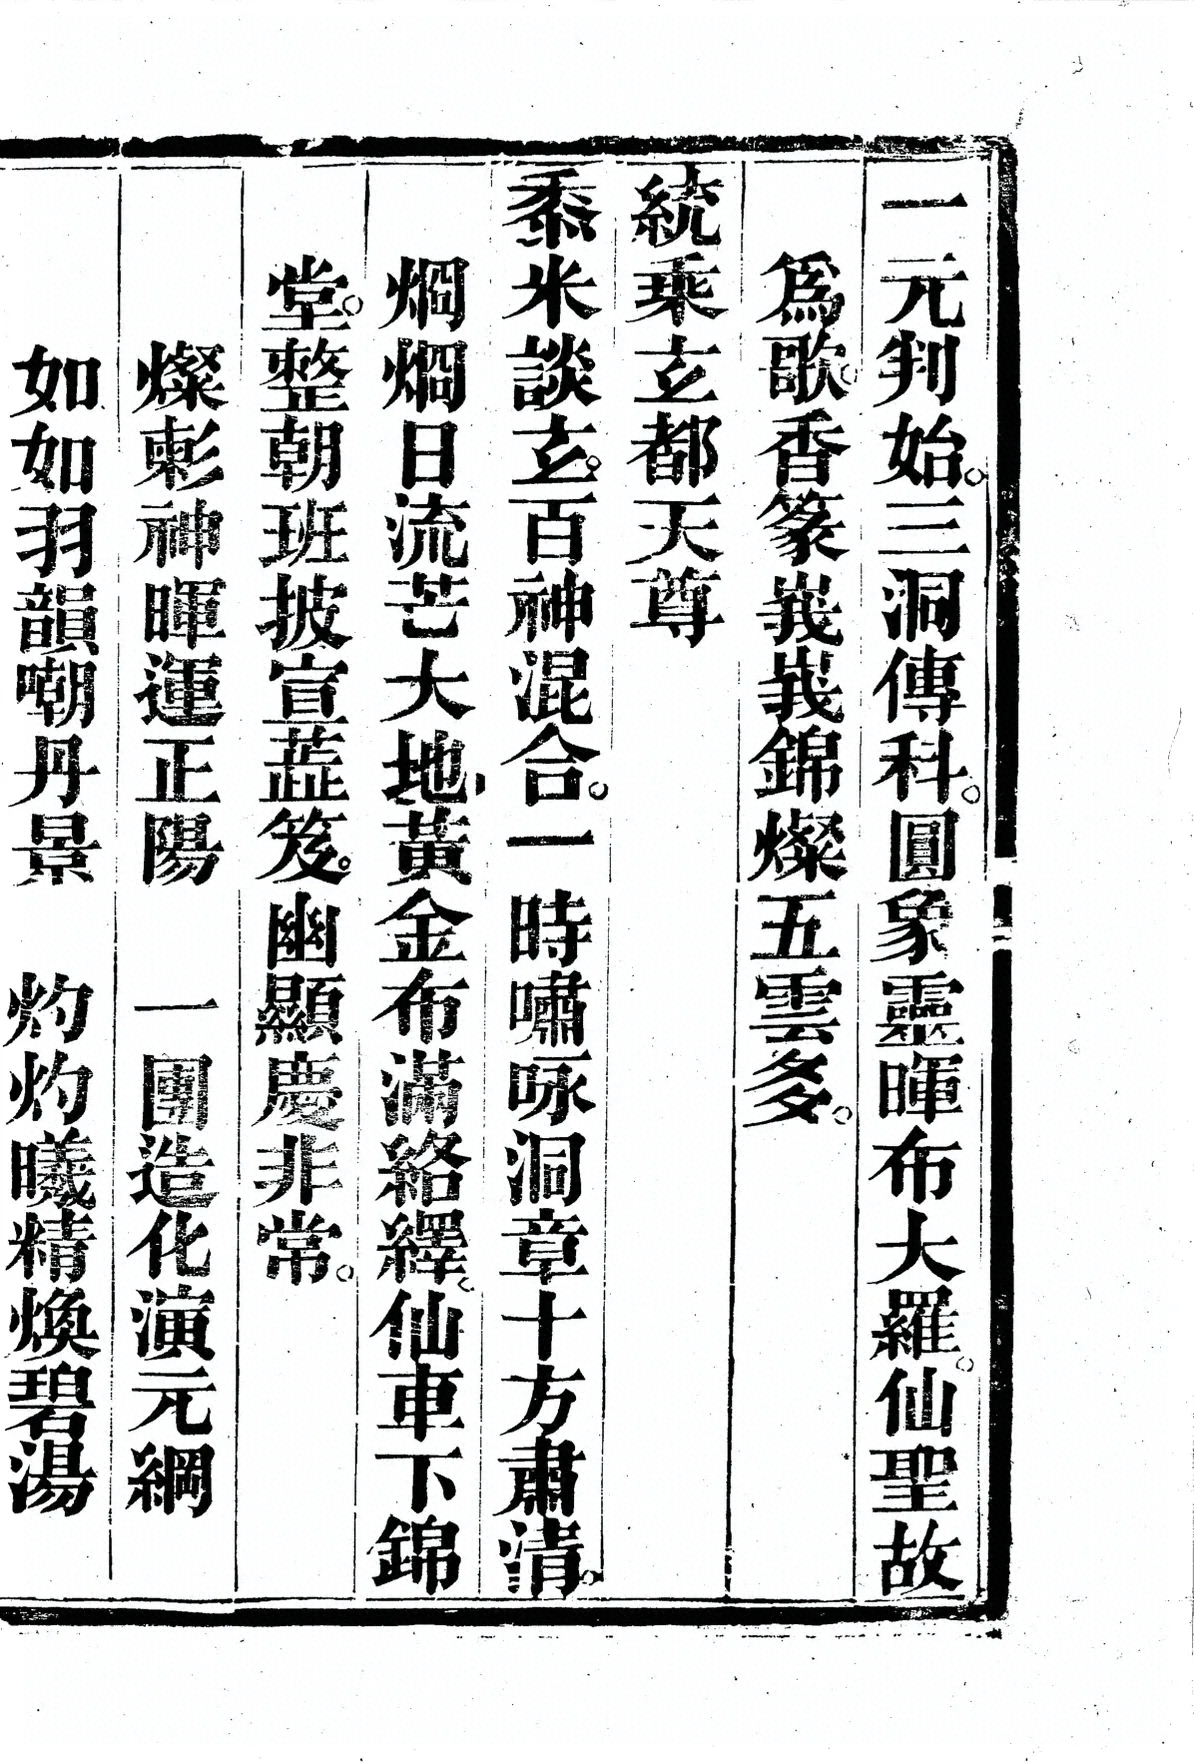 一元判始。三洞傳科。圓象靈暉布大羅。仙聖故
爲歌。香篆峩峩錦燦五雲多。
統乘玄都天尊
黍米談玄。百神混合。一時嘯咏洞章十方肅清。
烱烱日流芒大地、黃金布滿絡繹。仙車下錦
堂。整朝班披宣蕋笈。幽顯慶非常。
燦彰神暉運正陽　一團造化演元綱
如如羽韻嘲丹景　灼灼曦精煥碧湯